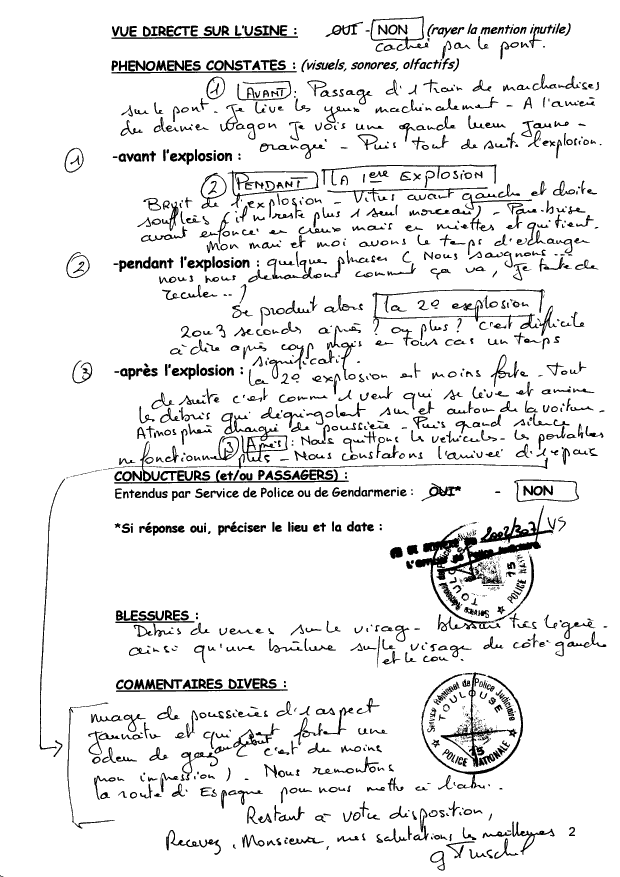 VUE DIRECTE SUR L'USINE : OUI - NON (rayer la mention inutile)
cachée par le pont.
PHENOMENES CONSTATES : (visuels, sonores, olfactifs)
① AVANT : Passage d'1 train de marchandises
sur le pont. Je lève les yeux machinalement - A l'arrière
du dernier wagon je vois une grande lueur jaune -
orangée - Puis tout de suite l'explosion.
① -avant l'explosion :
② PENDANT LA 1ere EXPLOSION
Bruit de l'explosion - Vitres avant gauche et droite
soufflées (il ne reste plus 1 seul morceau) - Pare-brise
avant enfoncé en creux mais en miettes et qui tient.
Mon mari et moi avons le temps d'échanger
② -pendant l'explosion : quelques phrases ( Nous saignons ...
nous nous demandons comment ça va, je tente de
reculer ... )
Se produit alors la 2e explosion
2 ou 3 seconds après ? ou plus ? c'est difficile
à dire après coup mais en tous cas un temps
significatif.
③ -après l'explosion : la 2e explosion est moins forte - Tout
de suite c'est comme 1 vent qui se lève et amène
les débris qui dégringolent sur et autour de la voiture -
Atmosphère chargée de poussière - Puis grand silence
③ Après : Nous quittons le véhicule - les portables
ne fonctionnent plus - Nous constatons l'arrivée d'1 épais
CONDUCTEURS (et/ou PASSAGERS) :
Entendus par Service de Police ou de Gendarmerie : OUI* - NON
*Si réponse oui, préciser le lieu et la date :
2002/307/VS
L'Officier de Police Judiciaire
Service Régional de Police Judiciaire
TOULOUSE
15
POLICE NATIONALE
BLESSURES :
Débris de verres sur le visage - blessure très légère -
ainsi qu'une brûlure sur le visage du côté gauche
et le cou.
COMMENTAIRES DIVERS :
nuage de poussières d'1 aspect
jaunâtre et qui sent fortement une
odeur de gaz au début ( c'est du moins
mon impression ) - Nous remontons
la route d'Espagne pour nous mettre à l'abri.
Service Régional de Police Judiciaire
TOULOUSE
15
POLICE NATIONALE
Restant à votre disposition,
Recevez, Monsieur, mes salutations les meilleures
2